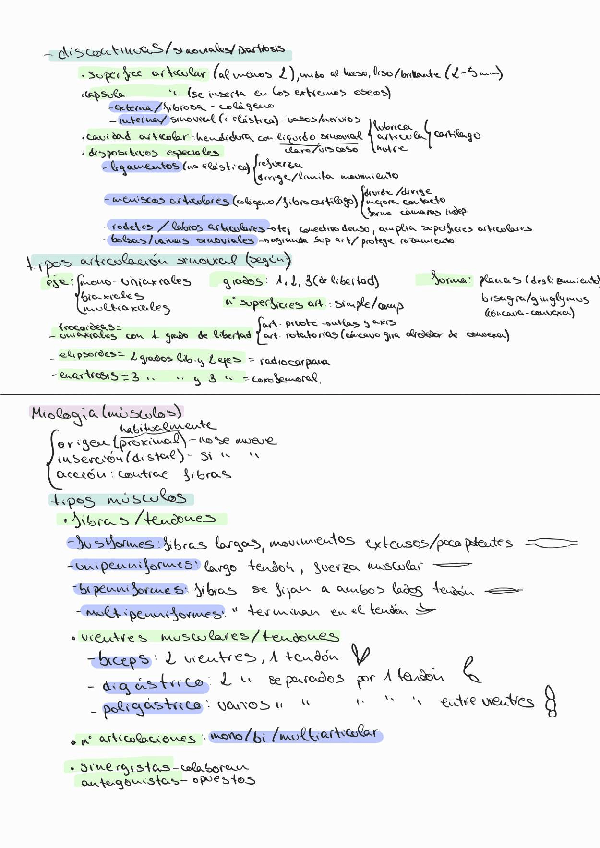 - discontinuas/sinoviales/diartrosis
• superficie articular (al menos 2), unido al hueso, liso/brillante (2-5mm)
• capsula " (se inserta en los extremos oseos)
- externa/fibrosa - colágeno
- interna/sinovial (elástica) vasos/nervios
• cavidad articular: hendidura con liquido sinovial { lubrica articula nutre } cartilago
claro/viscoso
• dispositivos especiales
- ligamentos (no elástico) { refuerza
dirige/limita movimiento
- meniscos articulares (colageno/fibrocartilago) { divide/dirige
mejora contacto
forma cámaras indep
- rodetes/labros articulares - tej conectivo denso, amplia superficies articulares
- bolsas/vainas sinoviales - sup art/protege rozamiento
tipos articulación sinovial (según)
eje: { mono-uniaxiales
biaxiales
multiaxiales
grados: 1, 2, 3 (de libertad)
nº superficies art: simple/comp
forma: planas (deslizamiento)
bisagra/ginglymus
(cóncava-convexa)
trocoides =
- uniaxiales con 1 grado de libertad { art. pivote - atlas y axis
art. rotatorias (cóncavo gira alrededor de convexa)
- elipsoides = 2 grados lib. y 2 ejes = radiocarpiana
- enartrosis = 3 " " y 3 " = coxofemoral.
Miologia (músculos)
habitualmente
{ origen (proximal) - no se mueve
inserción (distal) - si " "
acción: contrae fibras
tipos músculos
• fibras/tendones
- fusiformes: fibras largas, movimientos extensos/poco potentes
- unipenniformes: largo tendón, fuerza muscular
- bipenniformes: fibras se fijan a ambos lados tendón
- multipenniformes: " terminan en el tendón
• vientres musculares/tendones
- biceps: 2 vientres, 1 tendón
- digástrico: 2 " separados por 1 tendón
- poligástrico: varios " " " " " entre vientres
• nº articulaciones: mono/bi/multiarticular
• sinergistas - colaboran
antagonistas - opuestos